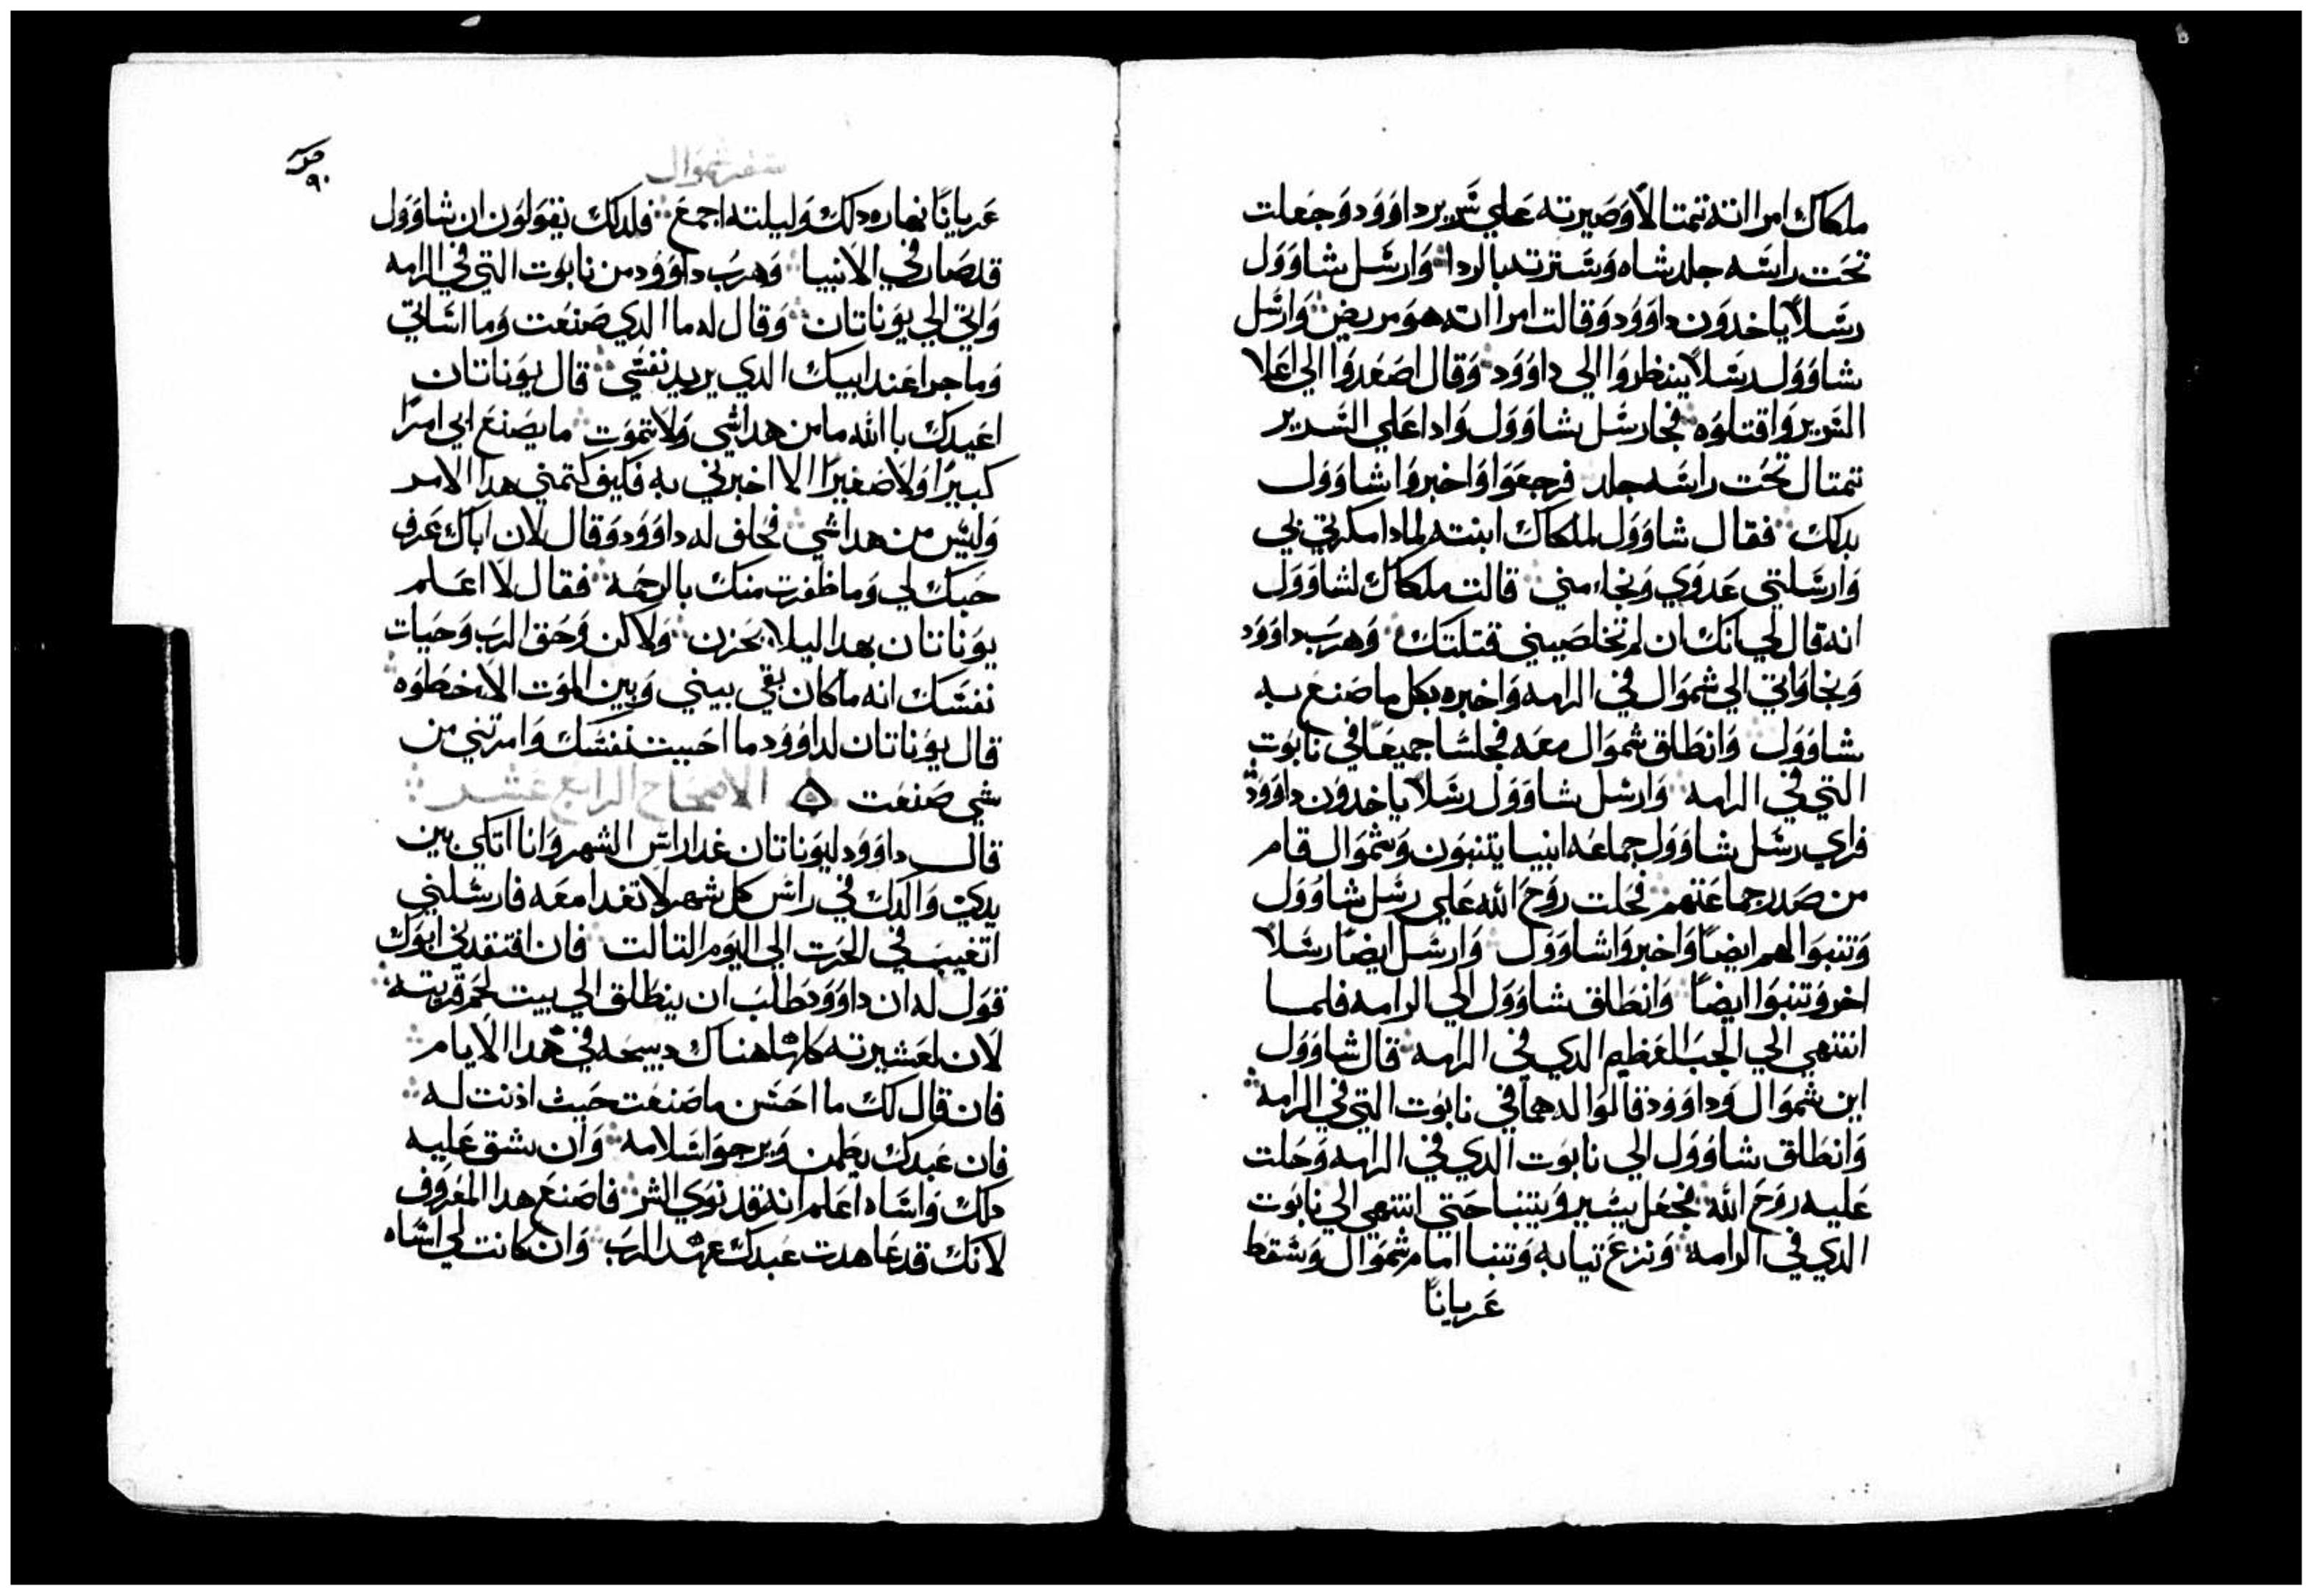 ملكاك امراته تمتالاً وصيرته علي سرير داوود وجعلت
تحت راسه جلد شاه وسترته بالردا وارسل شاوول
رسلاً ياخدون داوود وقالت امراته هو مريض وارسل
شاوول رسلاً ينظروا الي داوود وقال اصعدوا الي اعلا
السرير واقتلوه فجا رسل شاوول وادا علي السرير
تمتال تحت راسه جلد فرجعوا واخبروا شاوول
بدلك فقال شاوول لملكاك ابنته لمادا مكرتي بي
وارسلتي عدوي ونجا مني قالت ملكاك لشاوول
انه قال لي انك ان لم تخلصيني قتلتك وهرب داوود
ونجا واتي الي شموال في الرامه واخبره بكل ما صنع به
شاوول وانطلق شموال معه فجلسا جميعاً في نابوت
التي في الرامه وارسل شاوول رسلاً ياخدون داوود
فراي رسل شاوول جماعه انبيا يتنبون وشموال قام
من صدر جماعتهم فحلت روح الله علي رسل شاوول
وتنبوا هم ايضاً واخبروا شاوول وارسل ايضاً رسلاً
اخر وتنبوا ايضاً وانطلق شاوول الي الرامه فلما
انتهي الي الجب العظيم الدي في الرامه قال شاوول
اين شموال وداوود فالوا له هما في نابوت التي في الرامه
وانطلق شاوول الي نابوت الدي في الرامه وحلت
عليه روح الله فجعل يسير ويتنبا حتي انتهي الي نابوت
الدي في الرامه ونزع تيابه وتنبا امام شموال وسقط
عرياناً
سفر شموال
٩٠
عرياناً نهاره دلك وليلته اجمع فلدلك يقولون ان شاوول
قد صار في الانبيا وهرب داوود من نابوت التي في الرامه
واتي الي يوناتان وقال له ما الدي صنعت وما اساتي
وما جرا عند ابيك الدي يريد نفسي قال يوناتان
اعيدك باالله ما من هدا شي ولا تموت ما يصنع ابي امراً
كبيراً ولا صغيراً الا اخبرني به فكيف كتمني هدا الامر
وليس من هدا شي فحلف له داوود وقال لان اباك عرف
حبك لي وما ظفرت منك بالرحمه فقال لا اعلم
يوناتان بهدا ليلا يحزن ولاكن وحق الرب وحيات
نفسك انه ما كان بقي بيني وبين الموت الا خطوه
قال يوناتان لداوود ما احببت نفسك وامرتني من
شي صنعت الاصحاح الرابع عشر
قال داوود ليوناتان غدا راس الشهر وانا اتكي بين
يدي والدك في راس كل شهر لا تغدا معه فارسلني
اتغيب في الحرت الي اليوم التالت فان افتقدني ابوك
قول له ان داوود طلب ان ينطلق الي بيت لحم قريته
لان لعشيرته كلها هناك دبيحه في هدا الايام
فان قال لك ما احسن ما صنعت حيث ادنت له
فان عبدك يطمن ويرجوا سلامه وان شق عليه
دلك واساه اعلم انه قد نوي الشر فاصنع هدا المعروف
لانك قد عاهدت عبدك عهد الرب وان كانت لي اساه